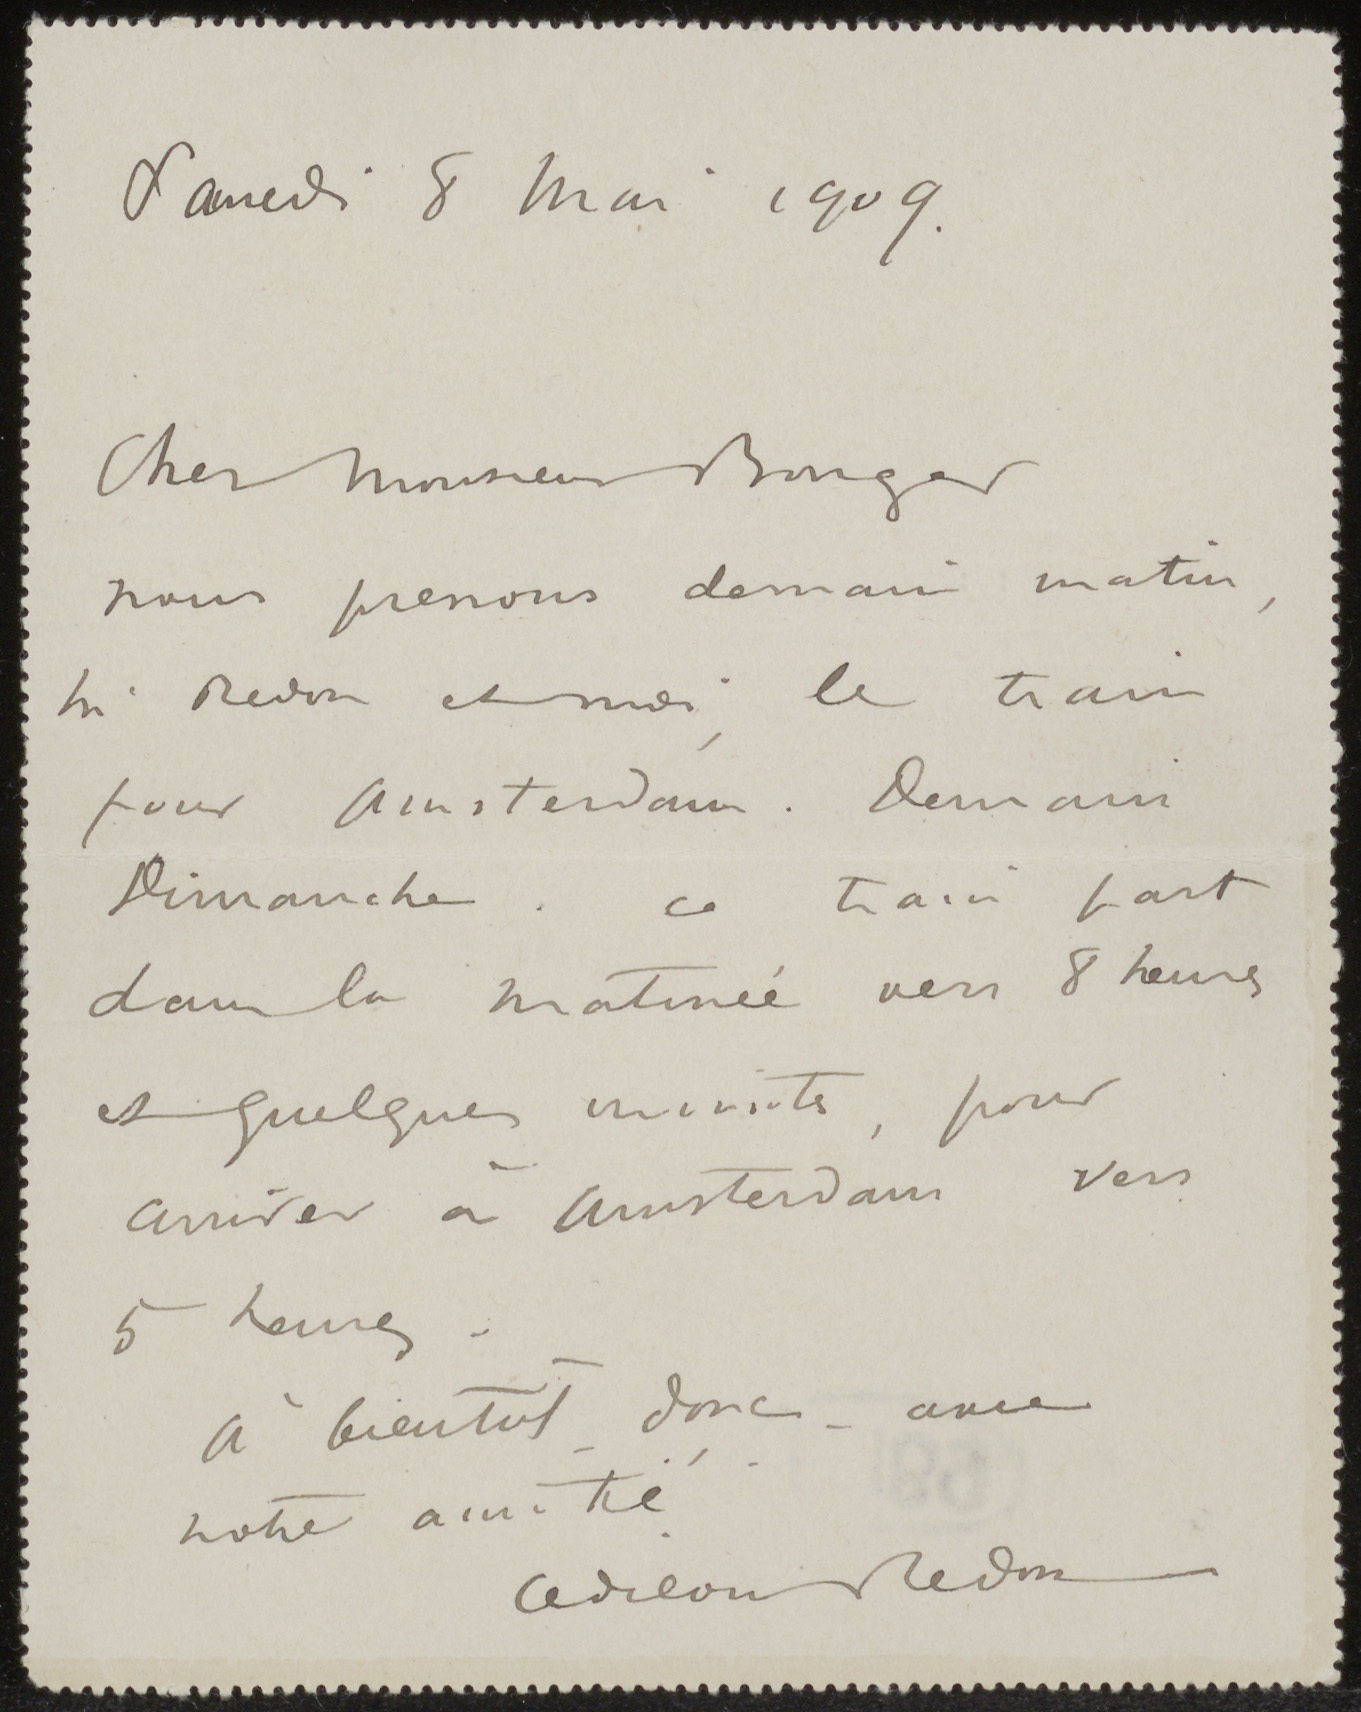 Samedi 8 Mai 1909.
Cher Monsieur Bonger
nous prenons demain matin,
Me Redon et moi, le train
pour Amsterdam. Demain
Dimanche. ce train part
dans la matinée vers 8 heures
et quelques minutes, pour
arriver à Amsterdam vers
5 heures.
à bientôt donc - avec
notre amitié.
Odilon Redon